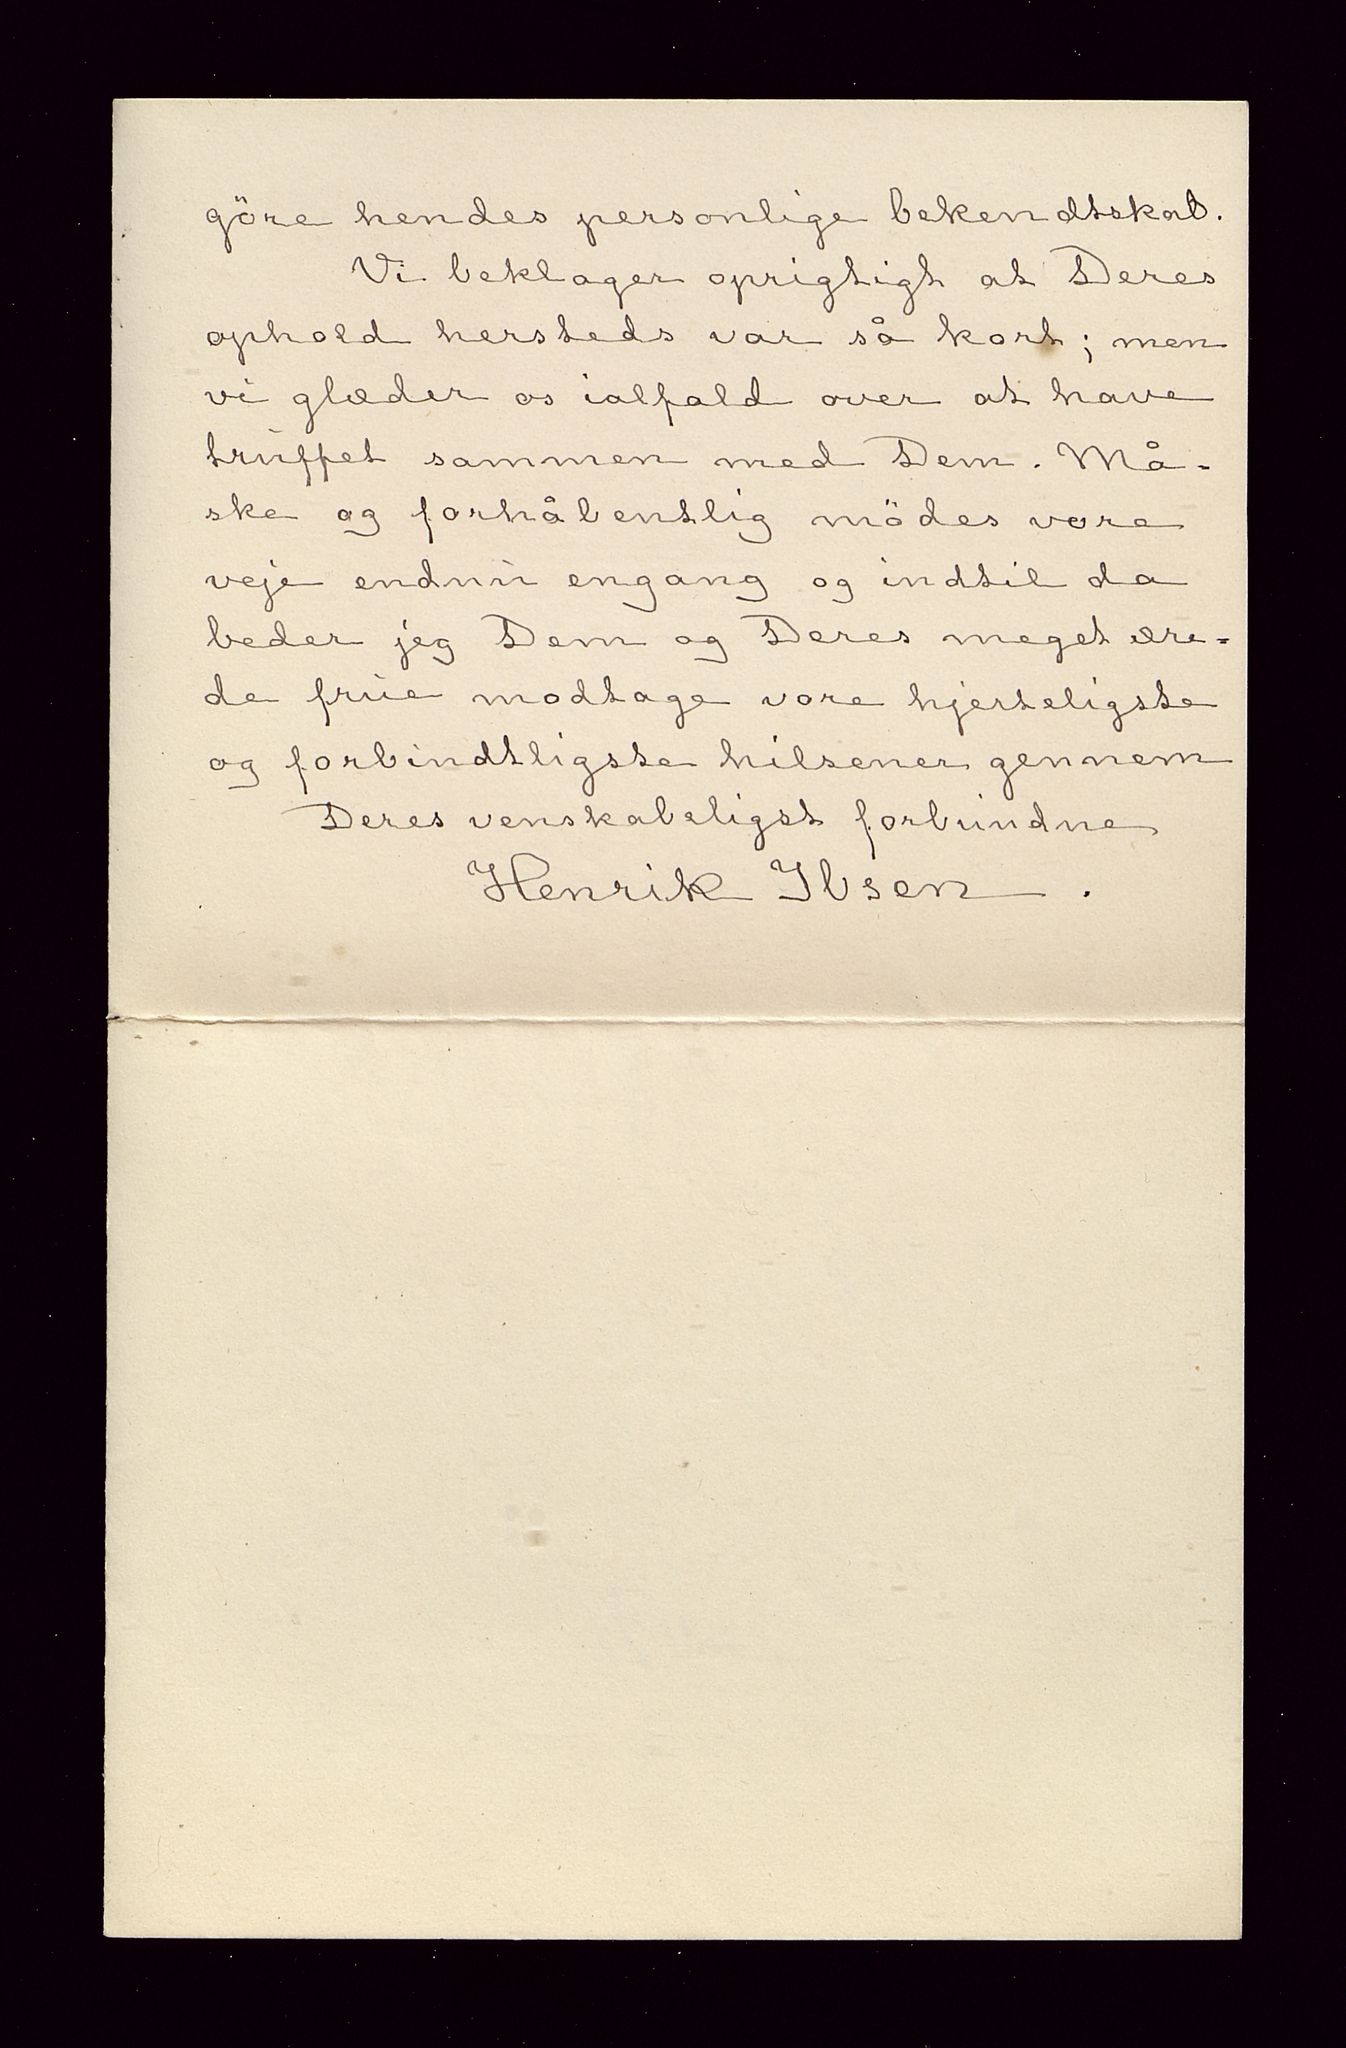 göre hendes personlige bekendtskab.
Vi beklager oprigtigt at Deres
ophold hersteds var så kort; men
vi glæder os ialfald over at have
truffet sammen med Dem. Må-
ske og forhåbentlig mödes vore
veje endnu engang og indtil da
beder jeg Dem og Deres meget ære-
de frue modtage vore hjerteligste
og forbindtligste hilsener gennem
Deres venskabeligst forbundne
Henrik Ibsen.